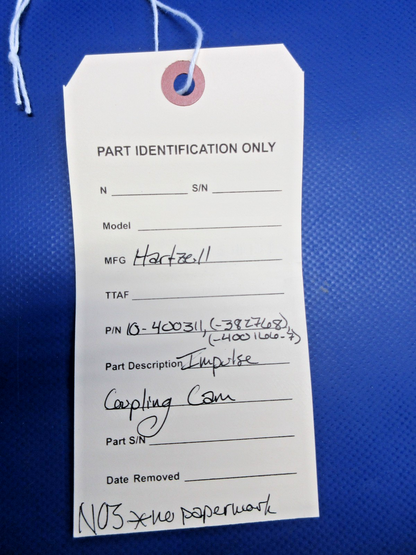 PART IDENTIFICATION ONLY
N ____________ S/N ____________
Model ____________
MFG Hartzell
TTAF ____________
P/N 10-400311, (-382768),
(-400166-7)
Part Description Impulse
Coupling Cam
Part S/N ____________
Date Removed ____________
NOS *no paperwork